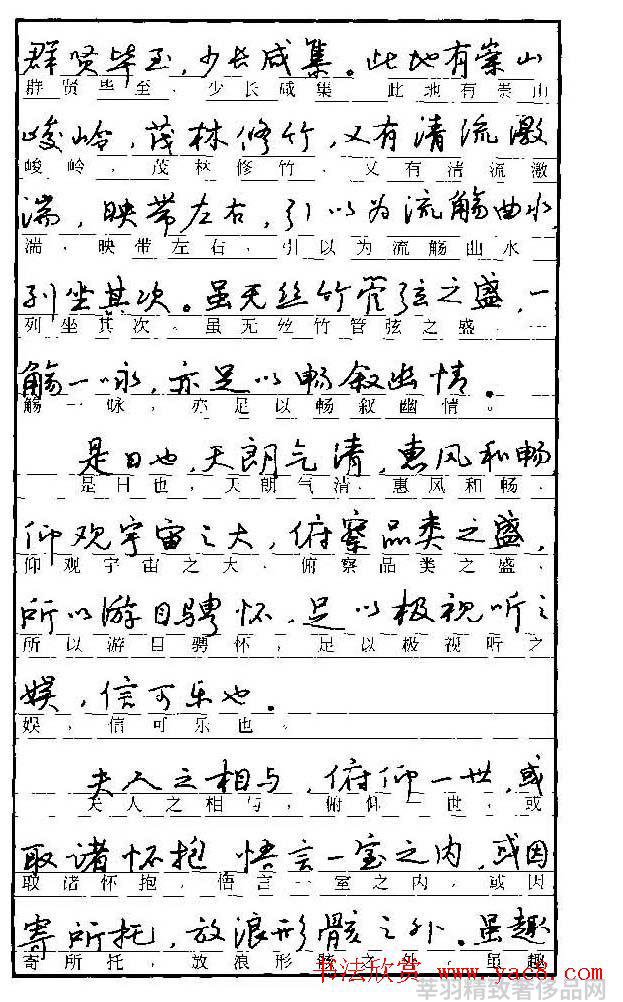 群贤毕至，少长咸集。此地有崇山
群贤毕至，少长咸集。此地有崇山
峻岭，茂林修竹，又有清流激
峻岭，茂林修竹，又有清流激
湍，映带左右，引以为流觞曲水，
湍，映带左右，引以为流觞曲水，
列坐其次。虽无丝竹管弦之盛，一
列坐其次。虽无丝竹管弦之盛，一
觞一咏，亦足以畅叙幽情。
觞一咏，亦足以畅叙幽情。
是日也，天朗气清，惠风和畅
是日也，天朗气清，惠风和畅，
仰观宇宙之大，俯察品类之盛，
仰观宇宙之大，俯察品类之盛，
所以游目骋怀，足以极视听之
所以游目骋怀，足以极视听之
娱，信可乐也。
娱，信可乐也。
夫人之相与，俯仰一世，或
夫人之相与，俯仰一世，或
取诸怀抱 悟言一室之内，或因
取诸怀抱，悟言一室之内，或因
寄所托，放浪形骸之外。虽趣
寄所托，放浪形骸之外。虽趣
书法欣赏 www.yac8.com
莘羽精致奢侈品网